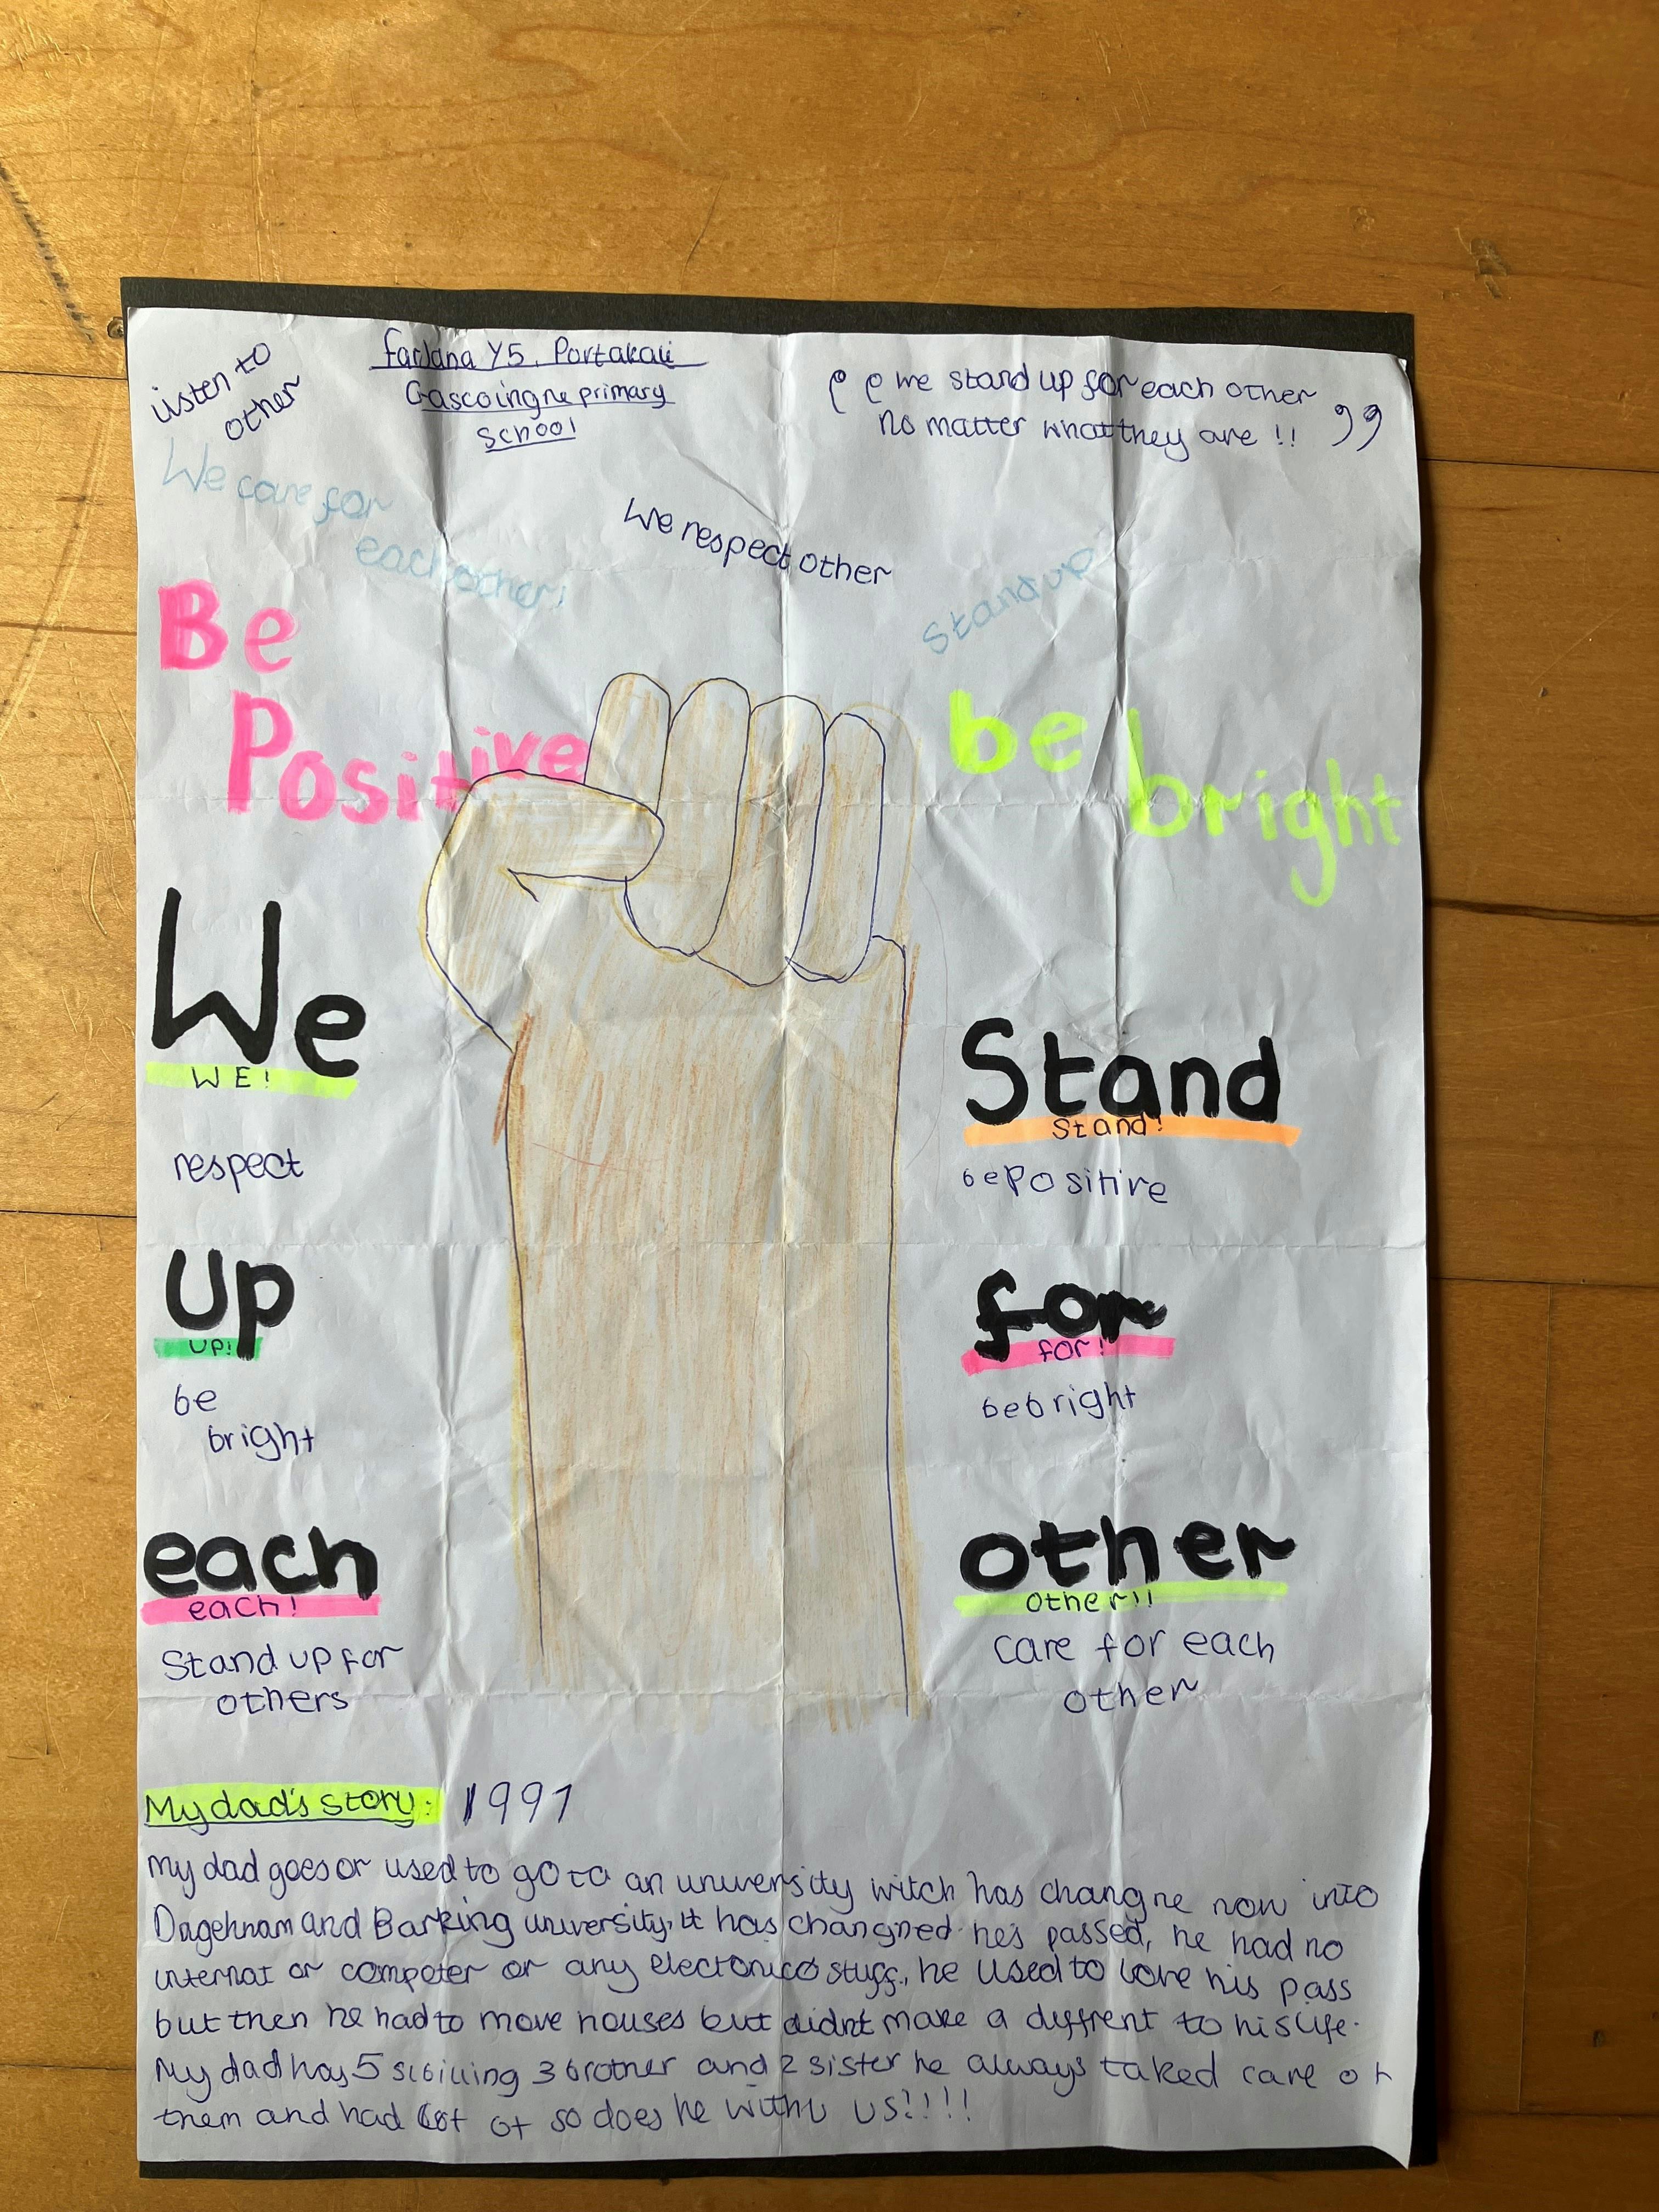 Listen to
other
Fardana Y5, Portakali
Gascoingne primary
school
“we stand up for each other
no matter what they are !!”
We care for
each other!
We respect other
Stand up
Be
Positive
be
bright
We
WE!
respect
Stand
Stand!
be Positive
Up
UP!
be
bright
for
for!
be bright
each
each!
Stand up for
others
other
other!!
care for each
other
My dad's story: 1991
My dad goes or used to go to an university witch has changne now into
Dagehnam and Barking university. it has changned he's passed, he had no
internat or compoter or any electronico stuff, he used to love his pass
but then he had to move houses but didnt make a diffrent to his life.
My dad has 5 sibiling 3 brother and 2 sister he always taked care of
them and had lot of so does he with us!!!!